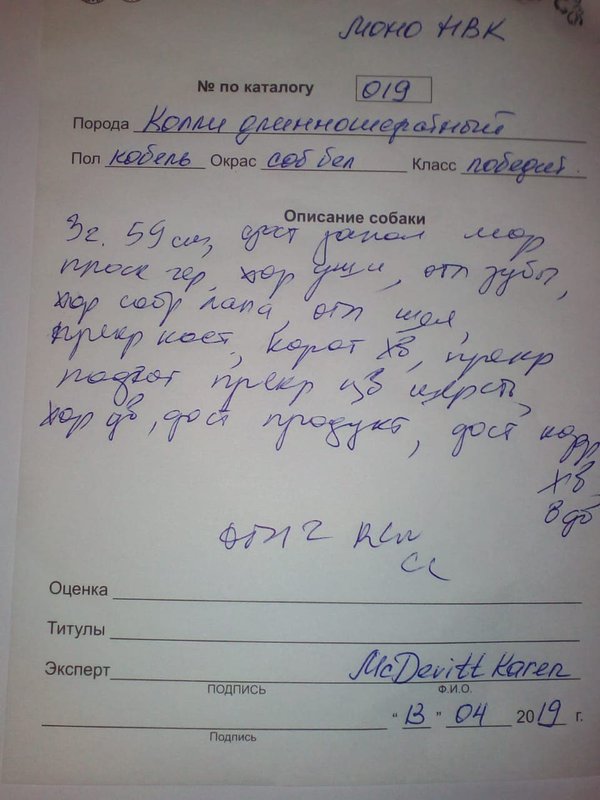 Моно НВК
№ по каталогу 019
Порода Колли длинношерстный
Пол кобель Окрас соб бел Класс победит.
Описание собаки
3г. 59 см, дост запол мор
проск чер, хор уши, отл зубы,
хор собр лапа, отл шея,
прекр кост, корот хв, прекр
подгот прекр цв шерсть,
хор дв, дост продукт, дост
хв
в дв
отл 2
CC
Оценка
Титулы
Эксперт McDevitt Karen
подпись Ф.И.О.
"13" 04 2019 г.
Подпись